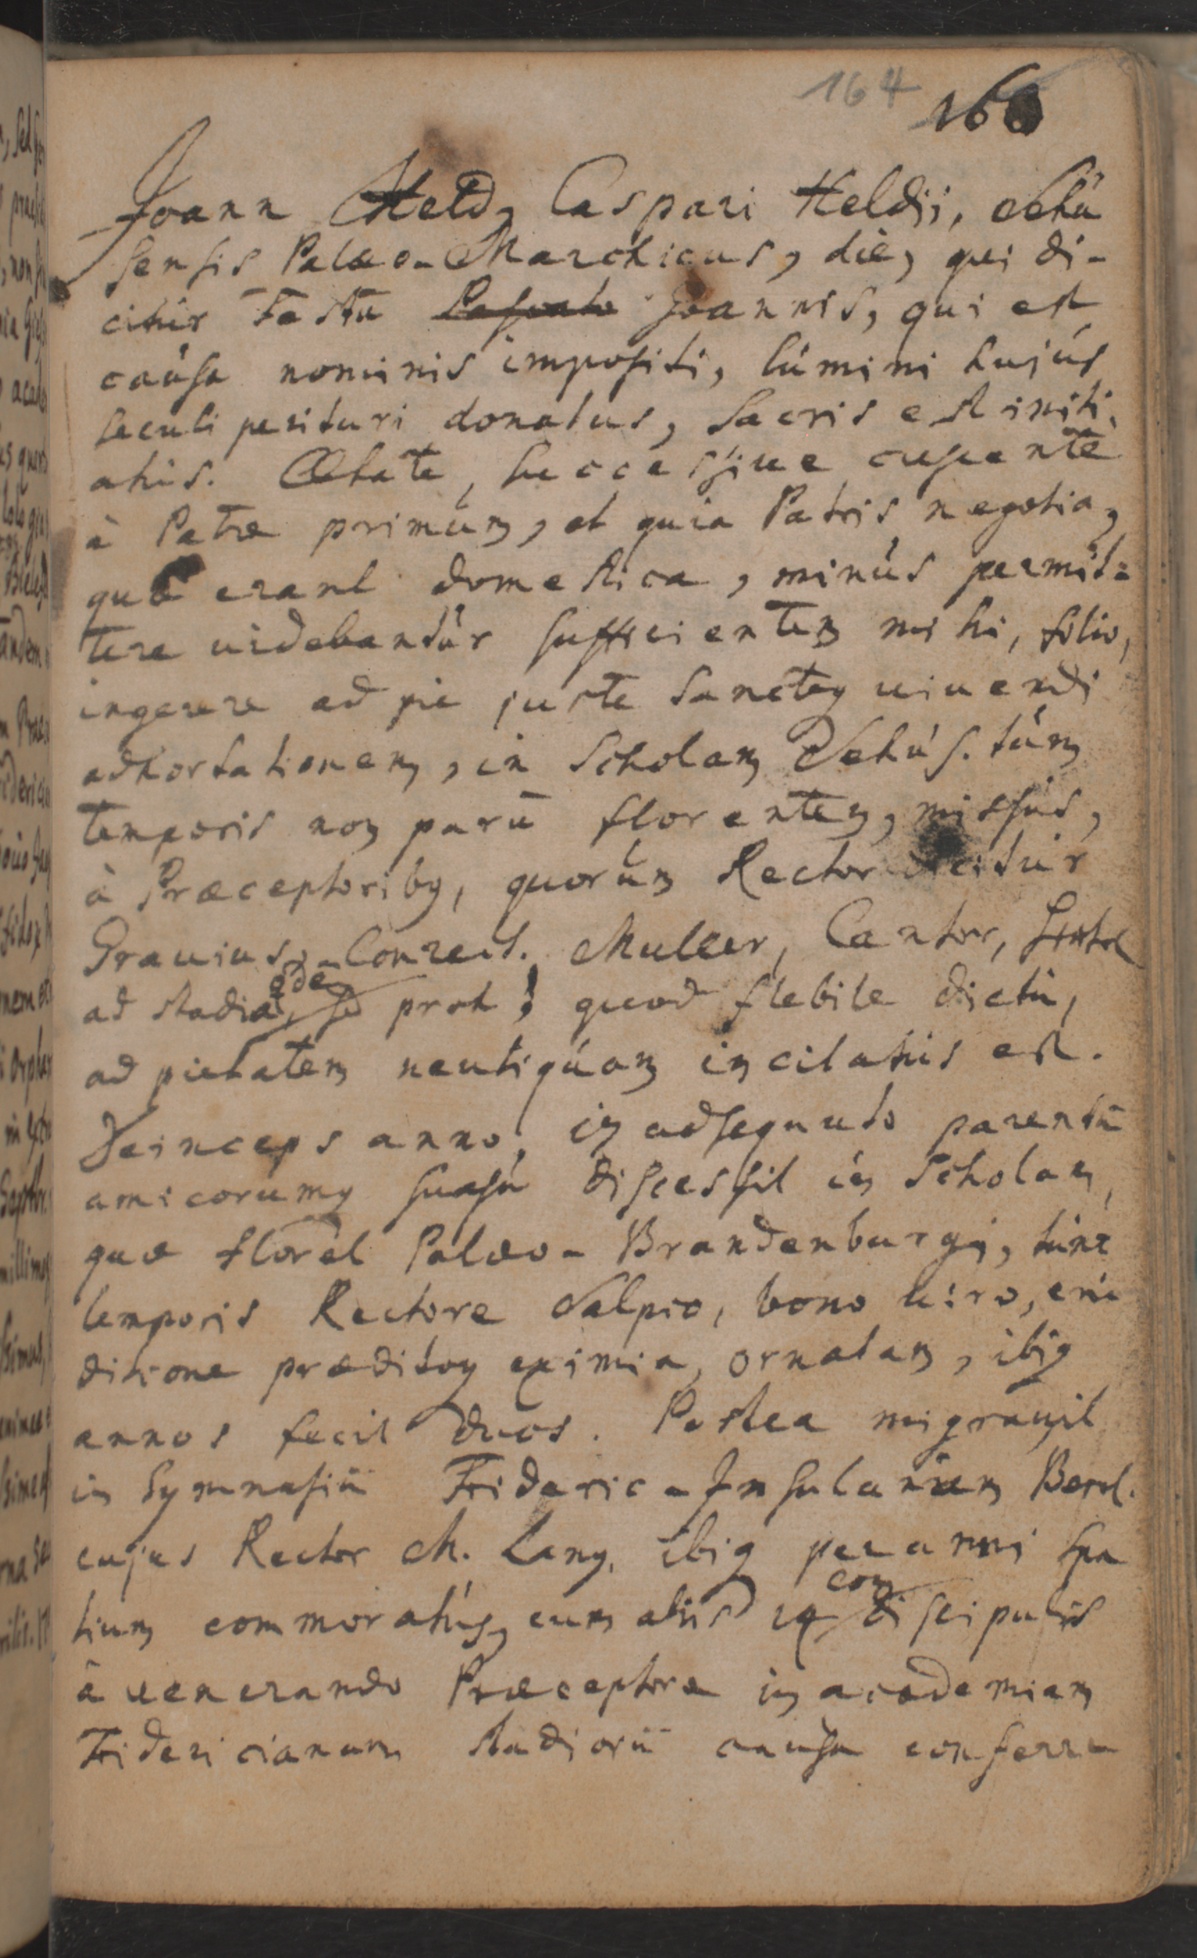 164 160
Joann Held, Caspari Heldii, Sehū
sensis Palæo-Marchicus, die, qui di-
citur Festū Joannis, qui est
causa nominis impositi, lúmini hujús
seculi perituri donatus, Sacris est initi,
atus. Ætate, successive crescente
à Patre primùm, et quia Patris negotia,
quæ erant domestica, minús permit=
tere videbantúr sufficientem mihi, filio,
ingerere ad pie juste Sancteq vivendi
adhortationem, in Scholam Sehús. túm
temporis non parū florentem, missus,
à Præceptoribq, quorúm Rector dicitúr
Gravius, Conrect. Muller, Cantor,
ad studia qdē proh! quod flebile dictu,
ad pietatem neutiquam incitatus est.
Deinceps anno, in adsequuto parentū
amicorumq suasu discessit in Scholam,
quæ floret Palæo-Brandenburgi, tunc
temporis Rectore Salpio, bono viro, eru
ditione præditoq eximia, ornatam, ibiq
annos fecit duos. Postea migravit
in Gymnasiū Frideric-Insulanum Berol.
cujus Rector ch. Lang, ibiq per anni spa
tium commoratus, cum aliis 14 con discipulis
à venerando Præceptore in academiam
Fridericianam studiorū causa conferre